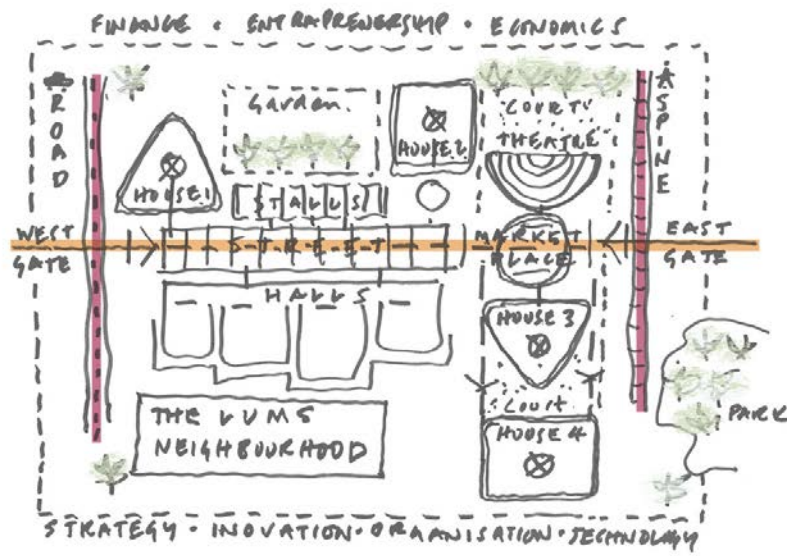 FINANCE • ENTRAPRENERSHIP • ECONOMICS
ROAD
Garden
HOUSE 1
HOUSE 2
COURT
THEATRE
SPINE
STALLS
WEST GATE
STREET
MARKET PLACE
EAST GATE
HALLS
HOUSE 3
Court
HOUSE 4
PARK
THE LUMS
NEIGHBOURHOOD
STRATEGY • INOVATION • ORGANISATION • TECHNOLOGY